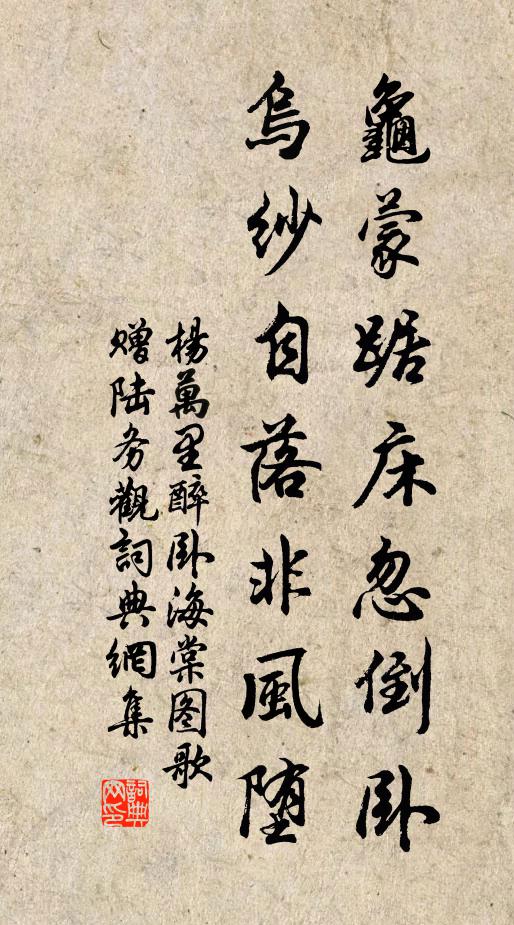 龜蒙踞床忽倒卧
烏紗自落非風堕
楊萬里醉卧海棠图歌
赠陆务觀詞典網集
詞典网印